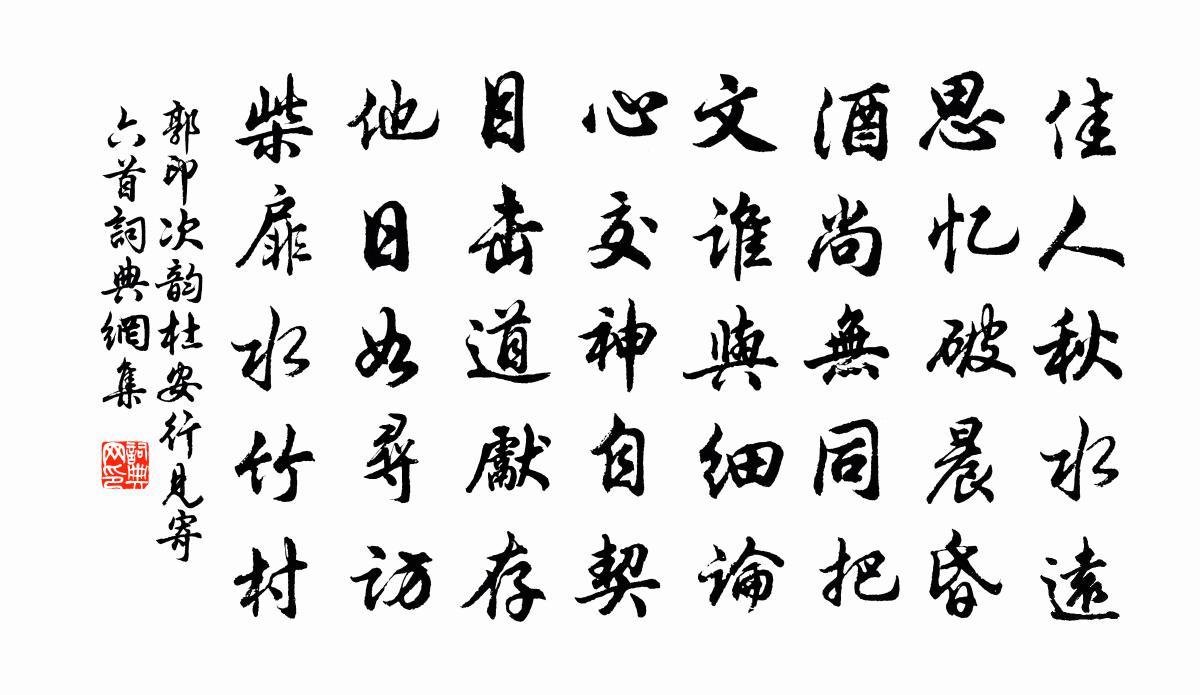 佳人秋水遠
思忆破晨昏
酒尚無同把
文誰與细論
心交神自契
目击道獻存
他日如尋訪
柴扉水竹村
郭印次韵杜安行見寄
六首詞典網集
詞典网印